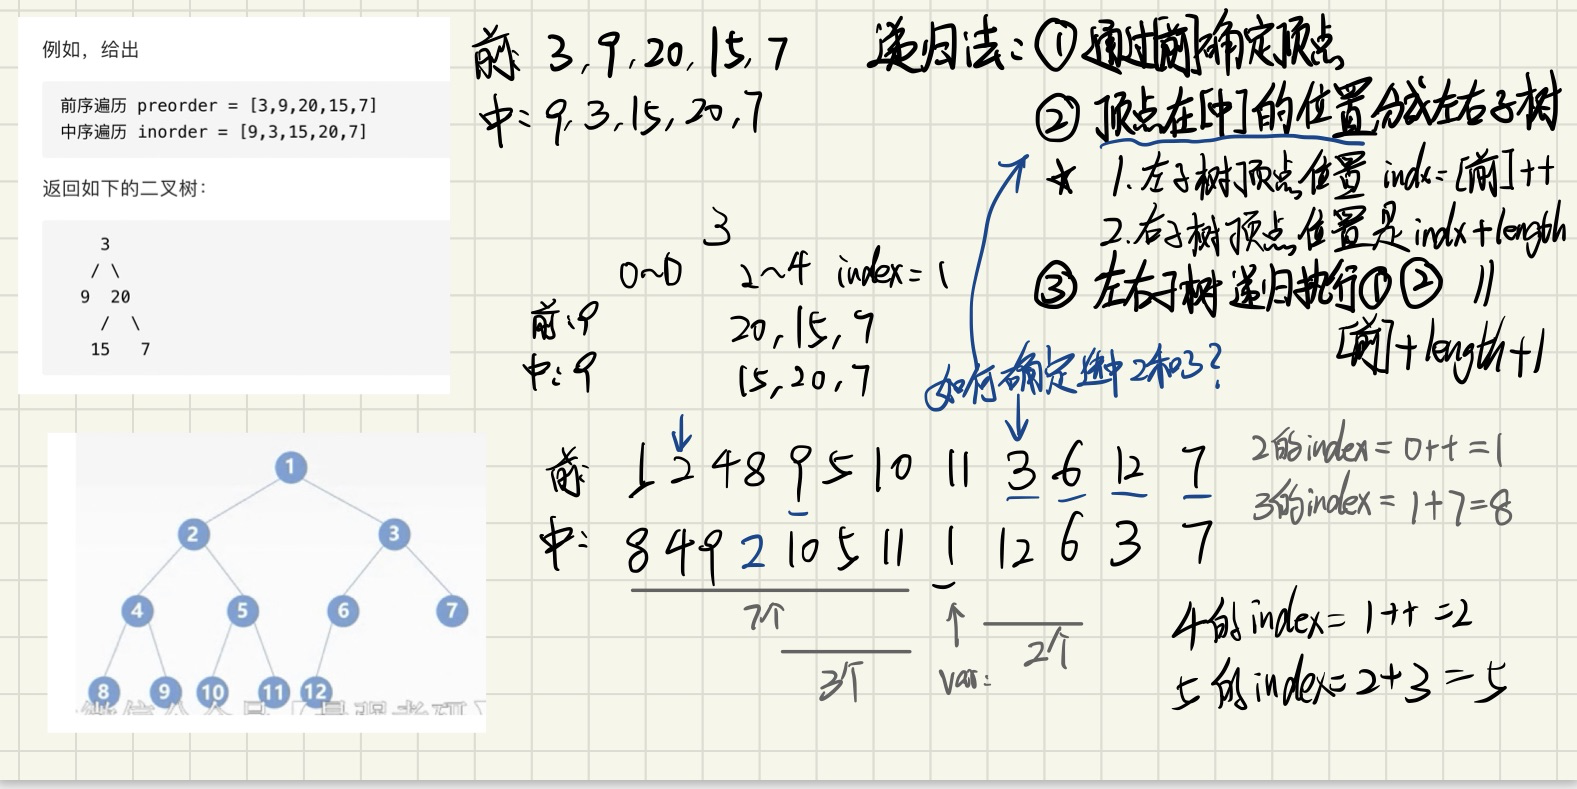 例如，给出
前序遍历 preorder = [3,9,20,15,7]
中序遍历 inorder = [9,3,15,20,7]
返回如下的二叉树：
3
/ \
9 20
/ \
15 7
前: 3, 9, 20, 15, 7
中: 9, 3, 15, 20, 7
3
0~0 2~4 index = 1
前: 9 20, 15, 7
中: 9 15, 20, 7
递归法: ① 通过[前]确定顶点
② 顶点在[中]的位置分成左右子树
☆ 1. 左子树顶点位置 indx = [前]++
2. 右子树顶点位置是 indx + length
③ 左右子树递归执行① ② 〃
[前] + length + 1
如何确定图中 2 和 3?
1
2 3
4 5 6 7
8 9 10 11 12
前: 1 2 4 8 9 5 10 11 3 6 12 7
中: 8 4 9 2 10 5 11 1 12 6 3 7
7个
3个
var:
2个
2的index = 0++ = 1
3的index = 1+7=8
4的index = 1++ = 2
5的index = 2+3 = 5